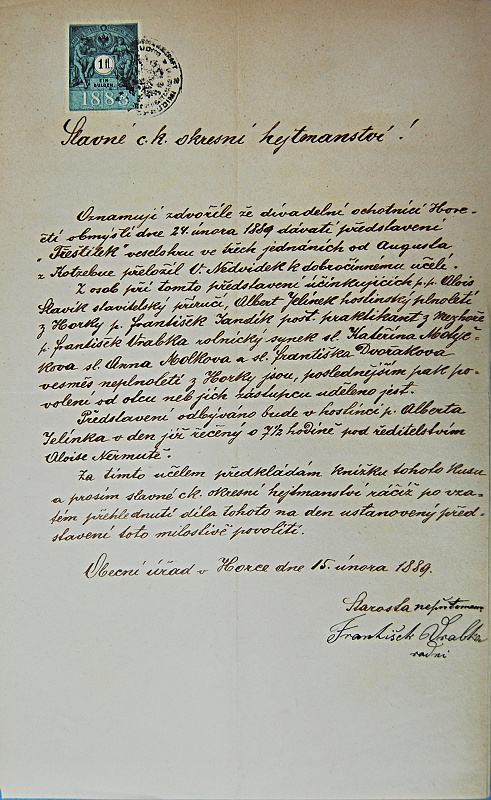 1 fl
EIN GULDEN
1888
Slavné c. k. okresní hejtmanství!
Oznamuji zdvořile že divadelní ochotníci Hore-
čtí obmýšlí dne 24. února 1889 dávati představení
„Třeštílek" veselohru ve třech jednáních od Augusta
z Kotzebue přeložil V. Nedvídek k dobročinnému účeli.
Z osob při tomto představení účinkujících p. p. Alois
Slavík stavitelský příručí, Albert Jelinek hostinský plnoletí
z Horky p. František Jandík pošt. praktikant z
p. František Vrabka rolnický synek sl. Kateřina
kova sl. Anna Molkova a sl. františka Dvořakova
vesměs neplnoletí z Horky jsou, poslednějším pak po-
volení od otcu neb jich zástupcu uděleno jest.
Představení odbýváno bude v hostinci p. Alberta
Jelinka v den jíž řečený o 7½ hodině pod ředitelstvím
Aloise Nermutě.
Za tímto účelem předkládám knížku tohoto kusu
a prosím slavné c.k. okresní hejtmanství ráčíž po vza-
tém přehlednutí díla tohoto na den ustanovený před-
stavení toto milostivě povolíti.
Obecní úřad v Horce dne 15. února 1889.
Starosta nepřítomen
František Vrabka
radní